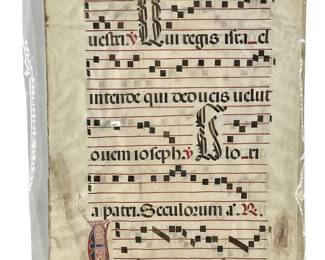 uestri. ℣ Qui regis isra_el
intende qui deducis uelut
ouem ioseph. ℣ Glo_ri
a patri. Seculorum a. ℟.